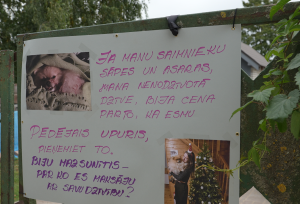 JA MANU SAIMNIEKU
SĀPES UN ASARAS,
MANA NENODZĪVOTĀ
DZĪVE, BIJA CENA
PAR TO, KA ESMU
PĒDĒJAIS UPURIS,
PIENEMIET TO.
BIJU MAZSUNĪTIS –
PAR KO ES MAKSĀJU
AR SAVU DZĪVĪBU?